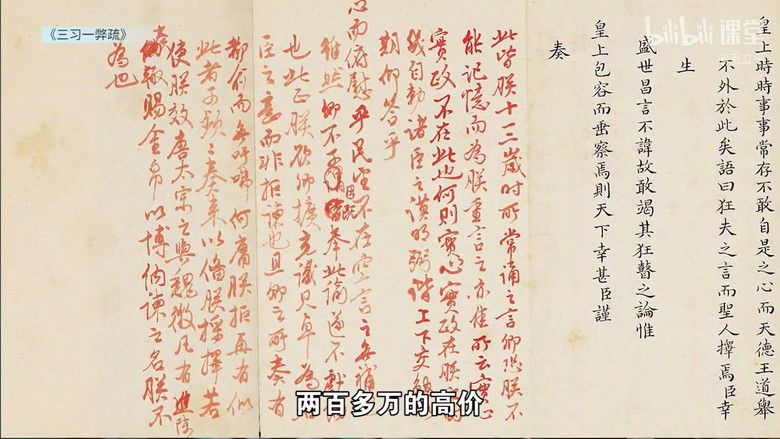 《三习一弊疏》
bilibili 课堂
皇上時時事事常存不敢自是之心而天德王道舉
不外於此矣語曰狂夫之言而聖人擇焉臣幸
生
盛世昌言不諱故敢竭其狂瞽之論惟
皇上包容而垂察焉則天下幸甚臣謹
奏
此皆朕十三歲時所常誦之言卿恐朕不
能記憶而為朕重言之亦佳所云實心
實政不在此也何則實心實政在朕
我自勤諸臣之讚明弼諧工下交
期仰答乎
心而俯慰乎民望不在空言之無補
雖然卿不此論遂不獻
也此正朕欲卿擴充識見卓為
臣之意而非拒諫也且卿之所奏有
都俞而無吁咈何庸朕拒再有似
此者可頻々奏來以備朕採擇若
使朕效唐太宗之與魏徵凡有進諫
輒賜金帛以博納諫之名朕不
為也
两百多万的高价